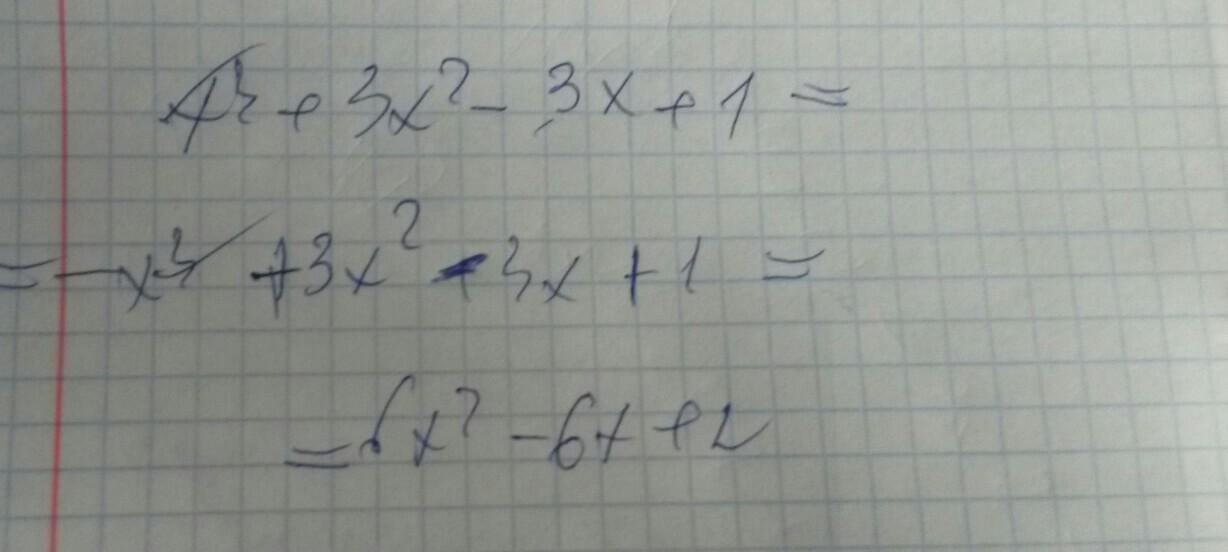 + 3x² - 3x + 1 =
= -x³ + 3x² - 3x + 1 =
= 6x² - 6x + 2